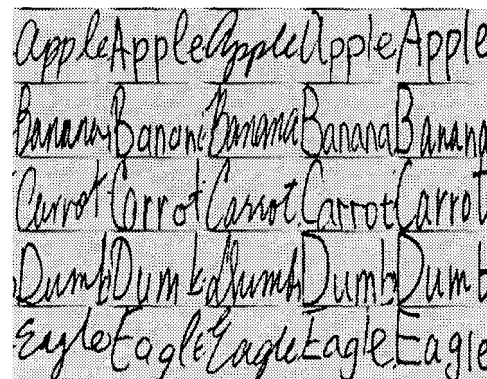 Apple Apple Apple Apple Apple
Banana Banana Banana Banana Banana
Carrot Carrot Carrot Carrot Carrot
Dumb Dumb Dumb Dumb Dumb
Eagle Eagle Eagle Eagle Eagle